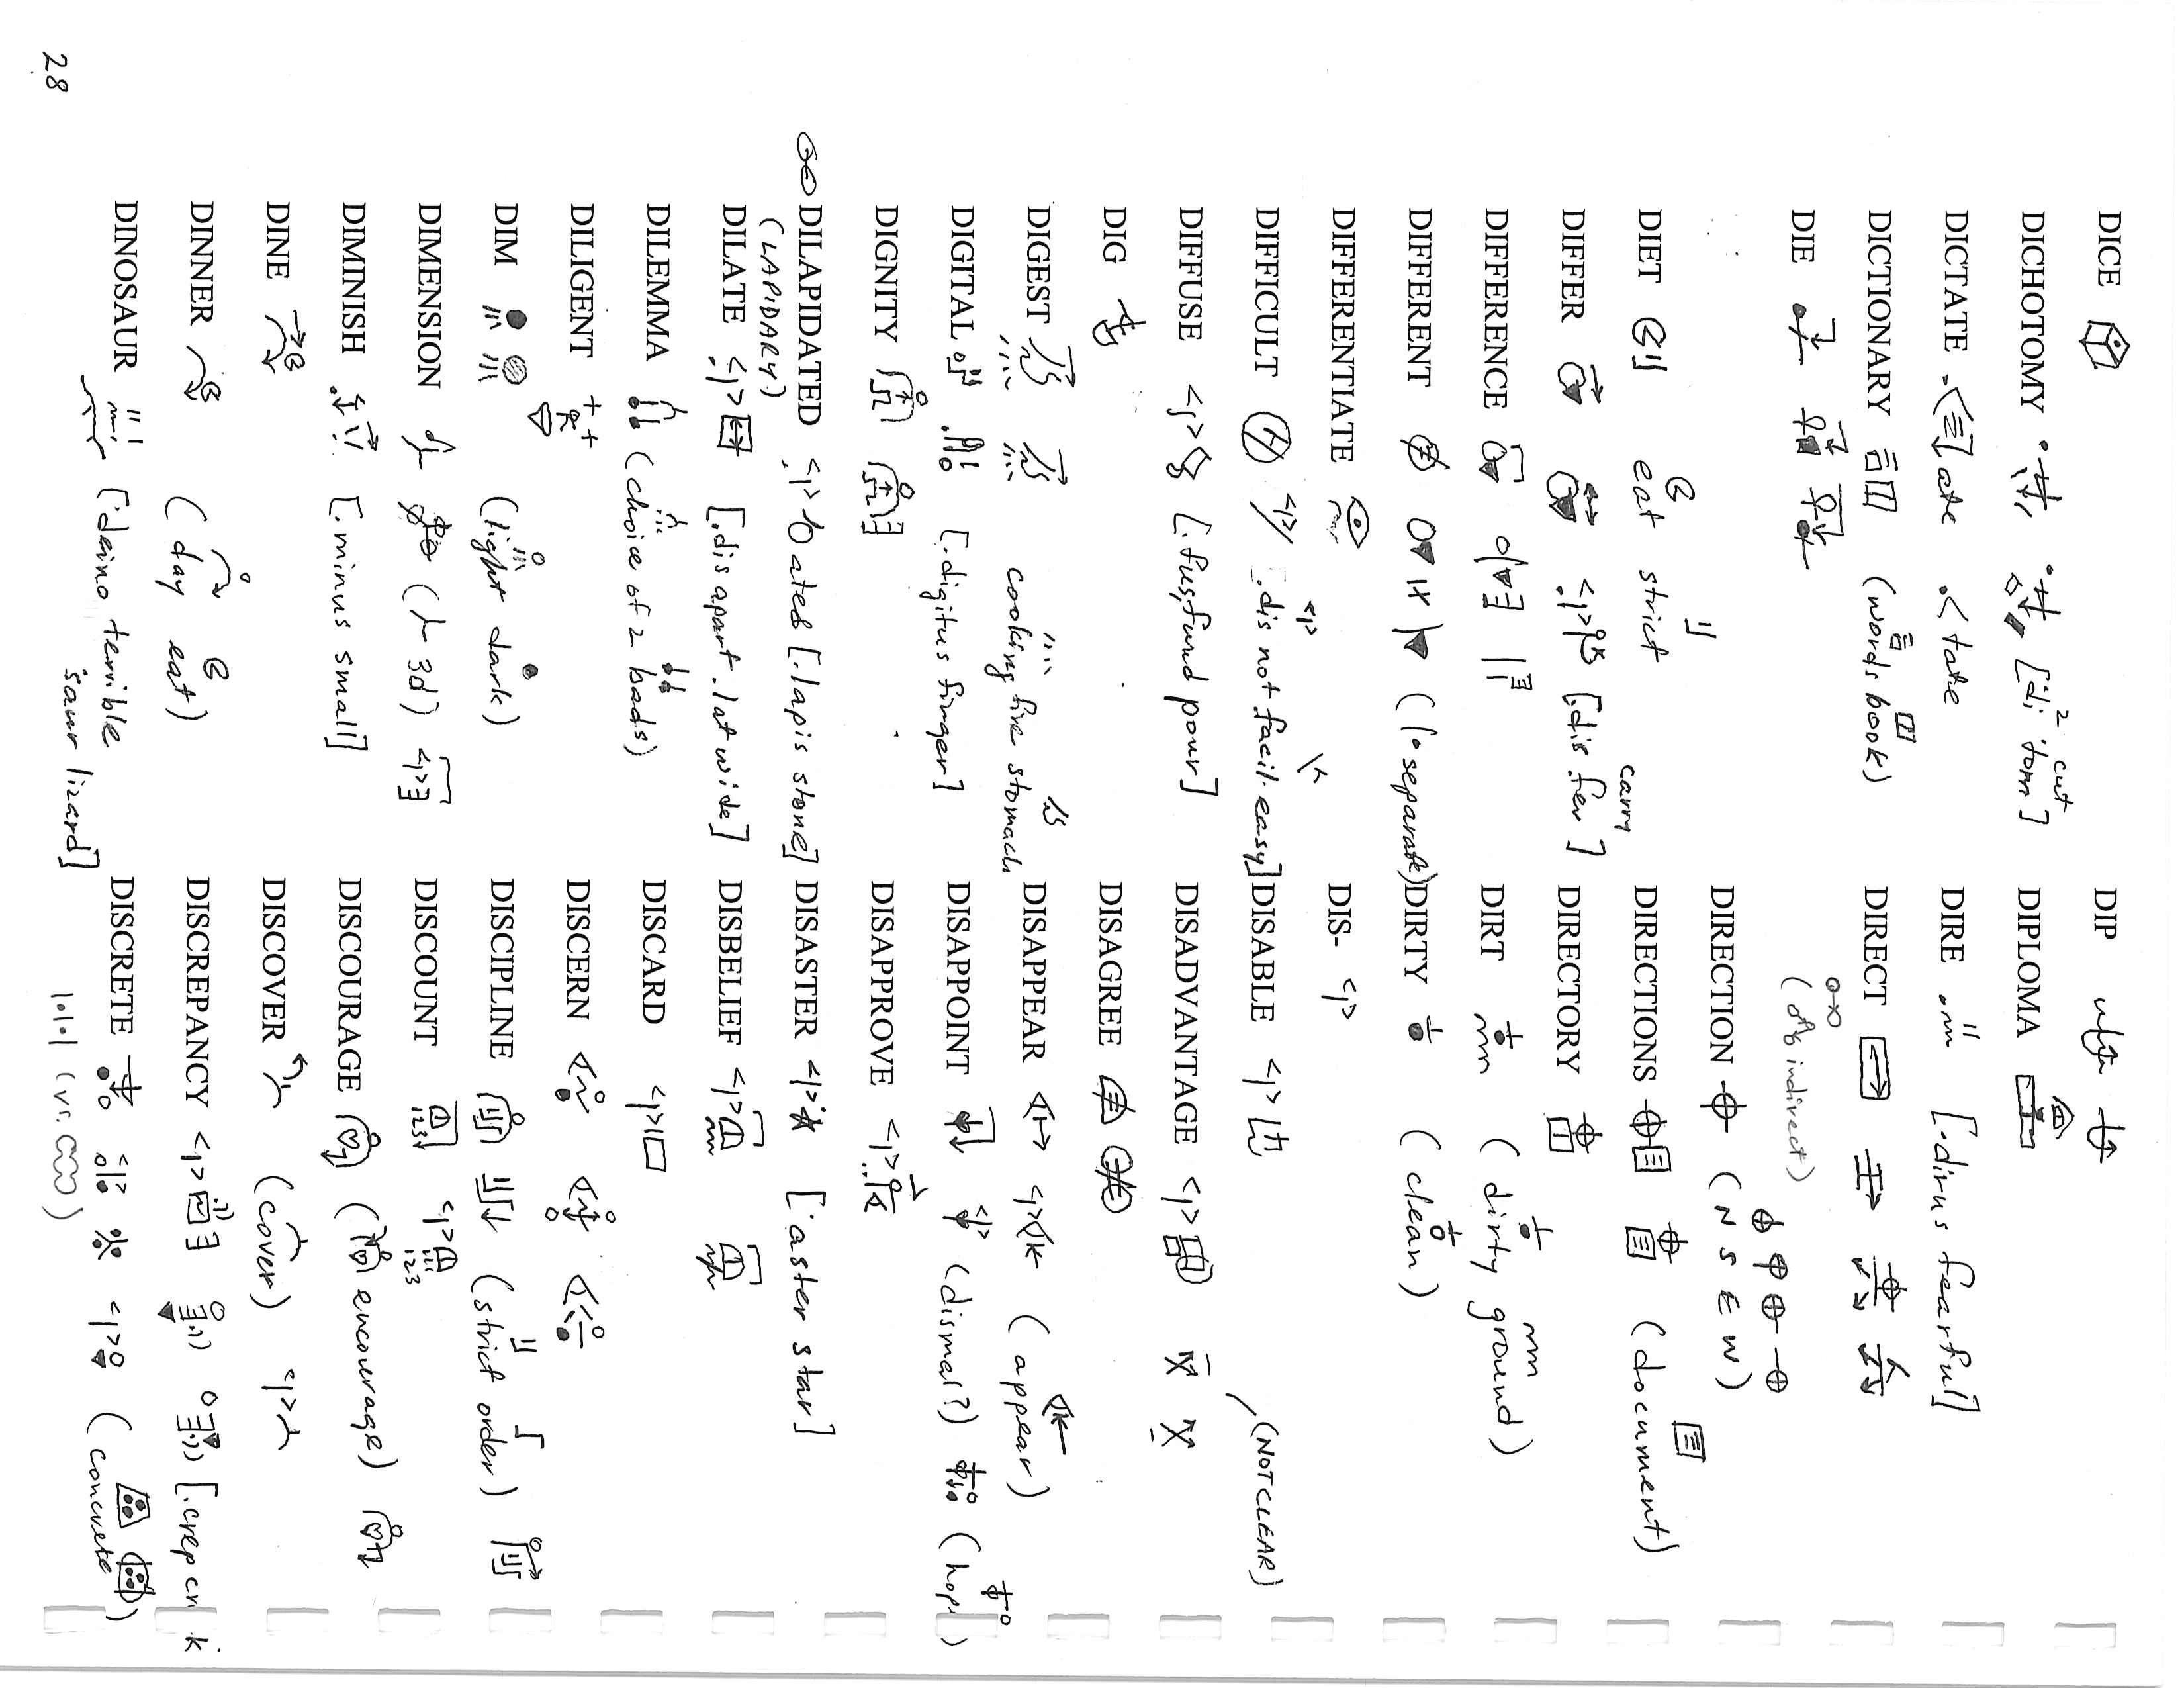 DICE
DICHOTOMY [di 2 tom cut]
DICTATE ate < tate
DICTIONARY (words book)
DIE
DIET eat strict
DIFFER [.dis fer carry]
DIFFERENCE
DIFFERENT (separate)
DIFFERENTIATE
DIFFICULT [.dis not facil.easy]
DIFFUSE [.fus,fund pour]
DIG
DIGEST cooking fire stomach
DIGITAL [.digitus finger]
DIGNITY
DILAPIDATED ated [.lapis stone]
(LAPIDARY)
DILATE [.dis apart .lat wide]
DILEMMA (choice of 2 bads)
DILIGENT
DIM (light dark)
DIMENSION (3d)
DIMINISH [.minus small]
DINE
DINNER (day eat)
DINOSAUR [.deino terrible
saur lizard]
DIP
DIPLOMA
DIRE [.dirus fearful]
DIRECT
(indirect)
DIRECTION (N S E W)
DIRECTIONS (document)
DIRECTORY
DIRT (dirty ground)
DIRTY (clean)
DIS-
DISABLE (NOT CLEAR)
DISADVANTAGE
DISAGREE
DISAPPEAR (appear)
DISAPPOINT (dismal?)
DISAPPROVE
DISASTER [.aster star]
DISBELIEF
DISCARD
DISCERN
DISCIPLINE (strict order)
DISCOUNT 123 123
DISCOURAGE (encourage)
DISCOVER (cover)
DISCREPANCY
DISCRETE (concrete)
(vs.
28